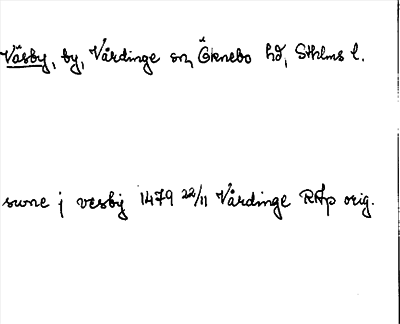 Väsby, by, Vårdinge sn, Öknebo hd, Sthlms l.
swne j vesby 1479 22/11 Vårdinge RAp orig.